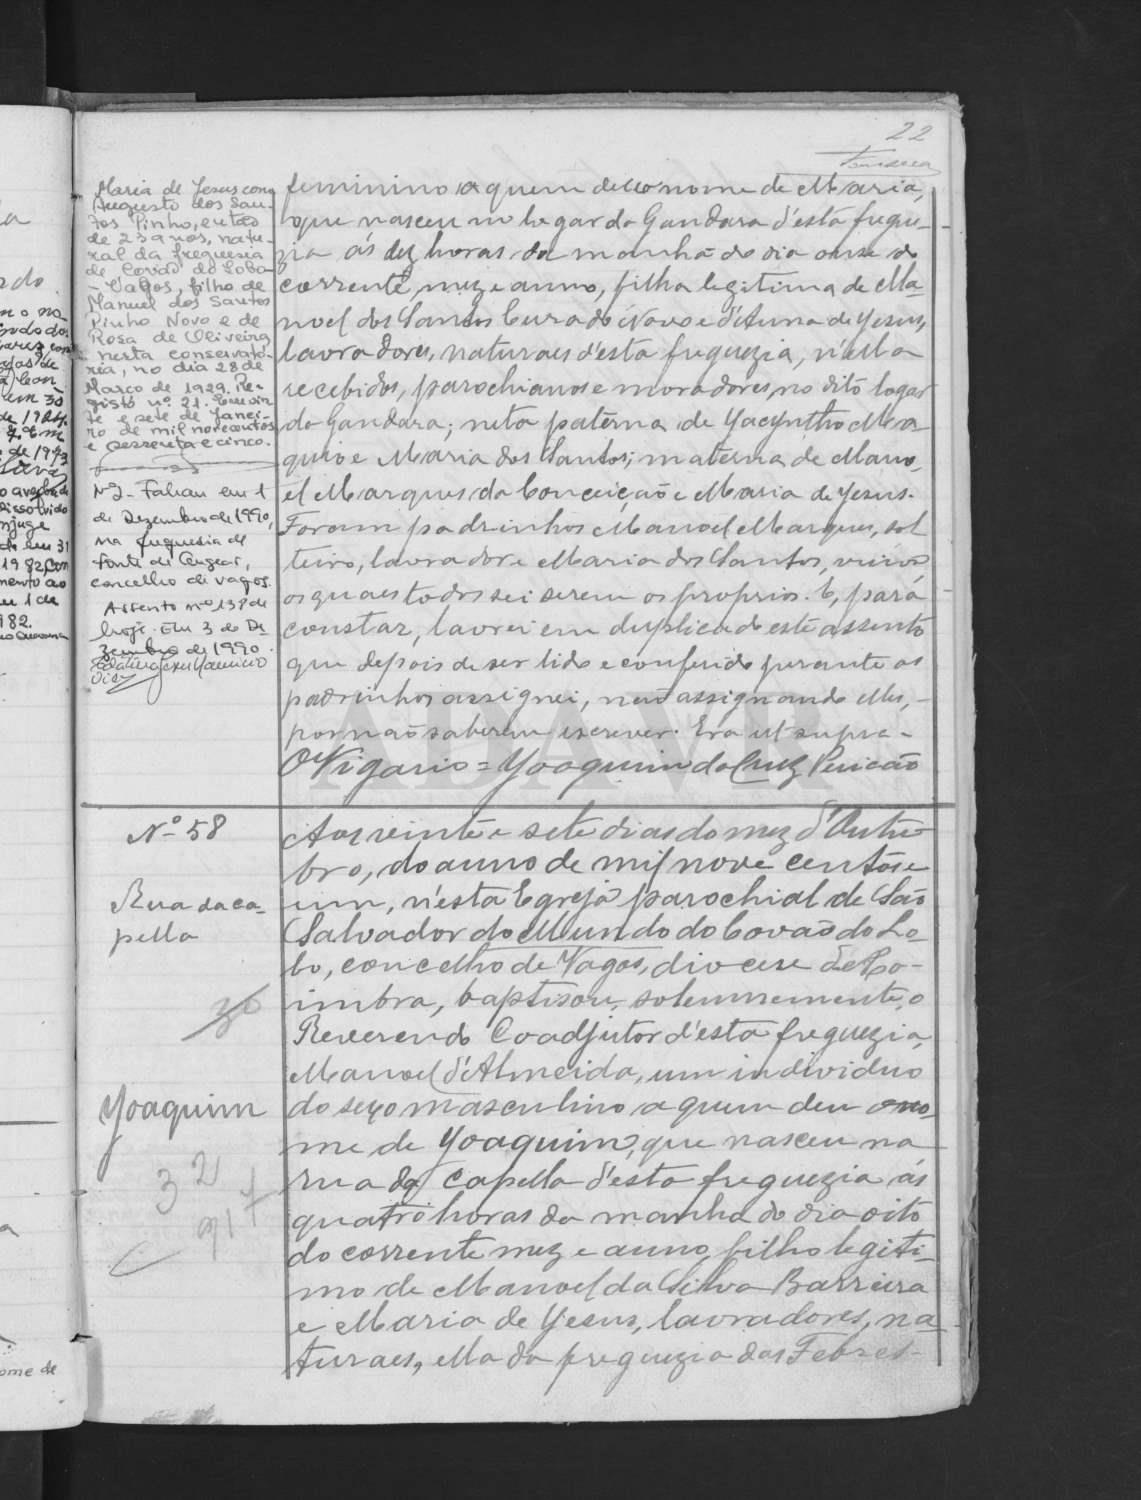 22
Fonseca
Maria de Jesus com
Augusto dos San-
tos Pinho, então
de 23 anos, natu-
ral da freguesia
de Covão do Lobo
- Vagos, filho de
Manuel dos Santos
Pinho Novo e de
Rosa de Oliveira
nesta conservató-
ria, no dia 28 de
Março de 1929. Re-
gisto nº 21. Em vin-
te e sete de Janei-
ro de mil novecentos
e sessenta e cinco.
Nº 2 - Faleceu em 1
de Dezembro de 1990,
na freguesia de
Fonte de Angeão,
concelho de Vagos.
Assento nº 138 de
hoje. Em 3 de De-
zembro de 1990.
feminino a quem dei o nome de Maria,
que nasceu no logar da Gandara d'esta fregue-
zia ás dez horas da manhã do dia onze do
corrente, mez e anno, filha legitima de Ma-
noel dos Santos Curado Novo e d'Anna de Jesus,
lavradores, naturaes d'esta freguezia, n'ella
recebidos, parochianos e moradores, no dito logar
da Gandara; neta paterna de Jacyntho Mar-
quio e Maria dos Santos; materna de Mano-
el Marques da Conceição e Maria de Jesus.
Foram padrinhos Manoel Marques, sol
teiro, lavrador e Maria dos Santos, viuva
os quaes todos sei serem os proprios. E, para
constar, lavrei em duplicado este assento
que depois de ser lido e conferido perante os
padrinhos assignei, não assignando elles,
por não saberem escrever. Era ut supra -
O Vigario = Joaquim da Cruz Pericão
Nº 58
Rua da Ca-
pella
30
Joaquim
Aos vinte e sete dias do mez d'Outu-
bro, do anno de mil nove centos e
um, n'esta Egreja parochial de São
Salvador do Mundo do Covão do Lo-
bo, concelho de Vagos, diocese de Co-
imbra, baptisou, solemnemente, o
Reverendo Coadjutor d'esta freguezia,
Manoel d'Almeida, um individuo
do sexo masculino a quem deu o no-
me de Joaquim, que nasceu na
rua da Capella d'esta freguezia ás
quatro horas da manhã do dia oito
do corrente mez e anno, filho legiti-
mo de Manoel da Silva Barreira
e Maria de Jesus, lavradores, na-
turaes, ella da freguezia das Febres
ADAVR